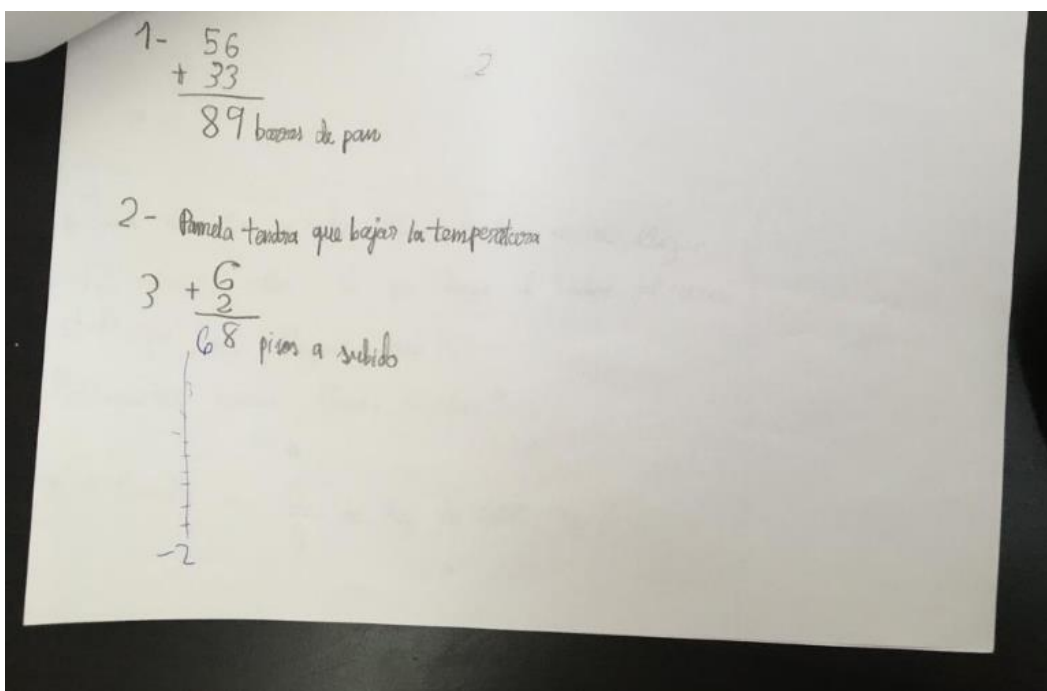 1- 56
2
+ 33
89 barras de pan
2- Pamela tendra que bajar la temperatura
3 + 6
2
8 pisos a subido
6
-2